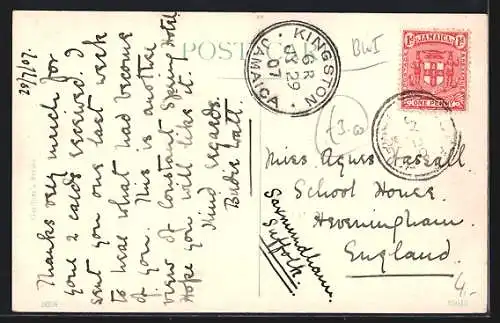 29/7/07.
Thanks very much for
your 2 cards received. I
sent you one last week
to hear what had become
of you. This is another
view of Constant Spring Hotel
Hope you will like it.
Kind regards.
Birdie Latt.
POSTCARD
KINGSTON
6 R
JY 29
07
JAMAICA
BWI
1D JAMAICA 1D
ONE PENNY
Miss Agnes Hassall
School House
Heveningham
Saxmundham
Suffolk.
England